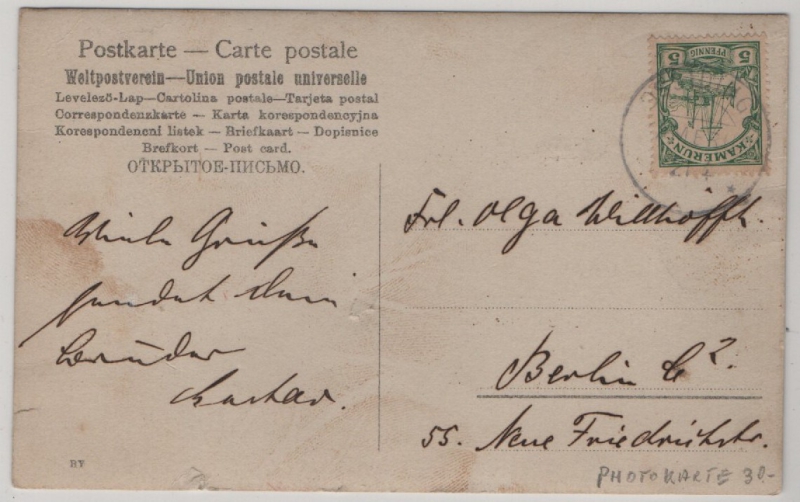 Postkarte — Carte postale
Weltpostverein—Union postale universelle
Levelező-Lap—Cartolina postale—Tarjeta postal
Correspondenzkarte — Karta korespondencyjna
Korespondencni listek — Briefkaart — Dopisnice
Brefkort — Post card.
ОТКРЫТОЕ-ПИСЬМО.
Viele Grüße
sendet Dein
Bruder
Gustav.
BY
5 PFENNIG 5
KAMERUN
Frl. Olga Willhöfft.
Berlin C².
55. Neue Friedrichstr.
PHOTOKARTE 30.-